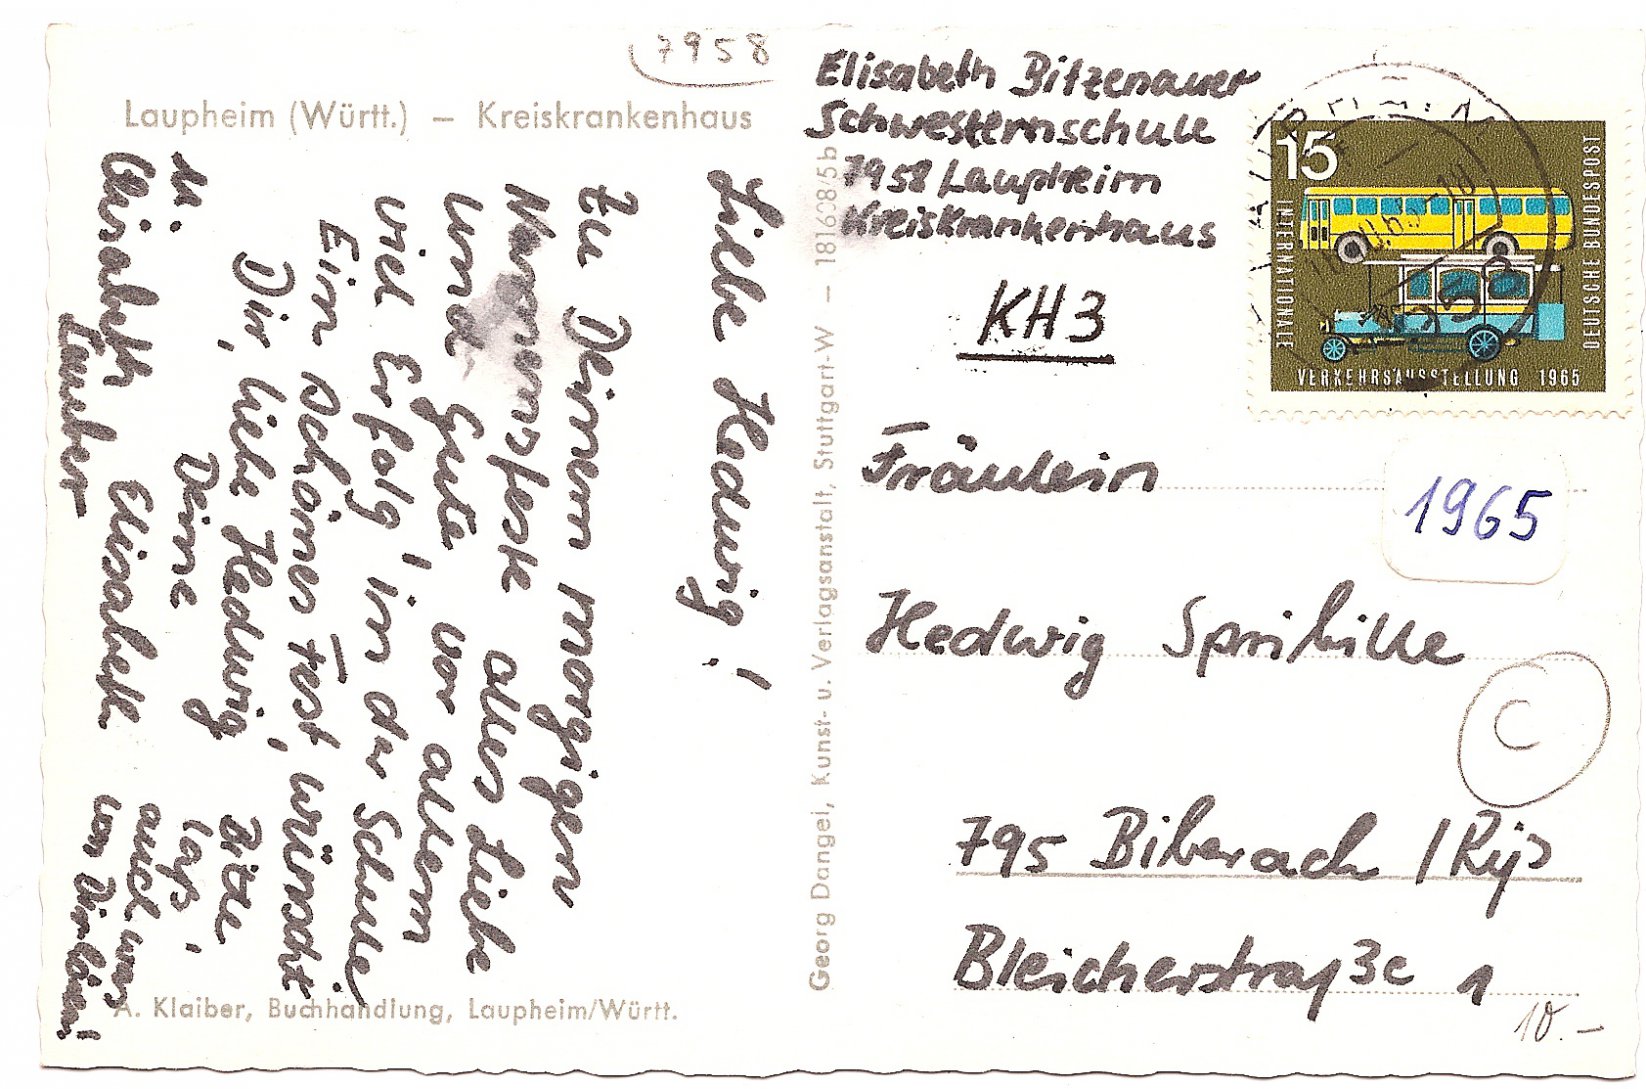 7958
Laupheim (Württ.) – Kreiskrankenhaus
Liebe Hedwig!
Zu Deinem morgigen
Namensfest alles Liebe
und Gute, vor allem
viel Erfolg in der Schule.
Ein schönes Fest, wünscht
Dir, liebe Hedwig
Deine
Elisabeth
Bitte
laß'
auch was
von Dir hören!
A. Klaiber, Buchhandlung, Laupheim/Württ.
Georg Dangel, Kunst- u. Verlagsanstalt, Stuttgart-W –
Elisabeth Bitzenauer
Schwesternschule
7958 Laupheim
Kreiskrankenhaus
KH3
15
INTERNATIONALE
VERKEHRSAUSSTELLUNG 1965
DEUTSCHE BUNDESPOST
1965
Fräulein
Hedwig
C
795 Biberach / Riß
Bleicherstraße 1
10.-